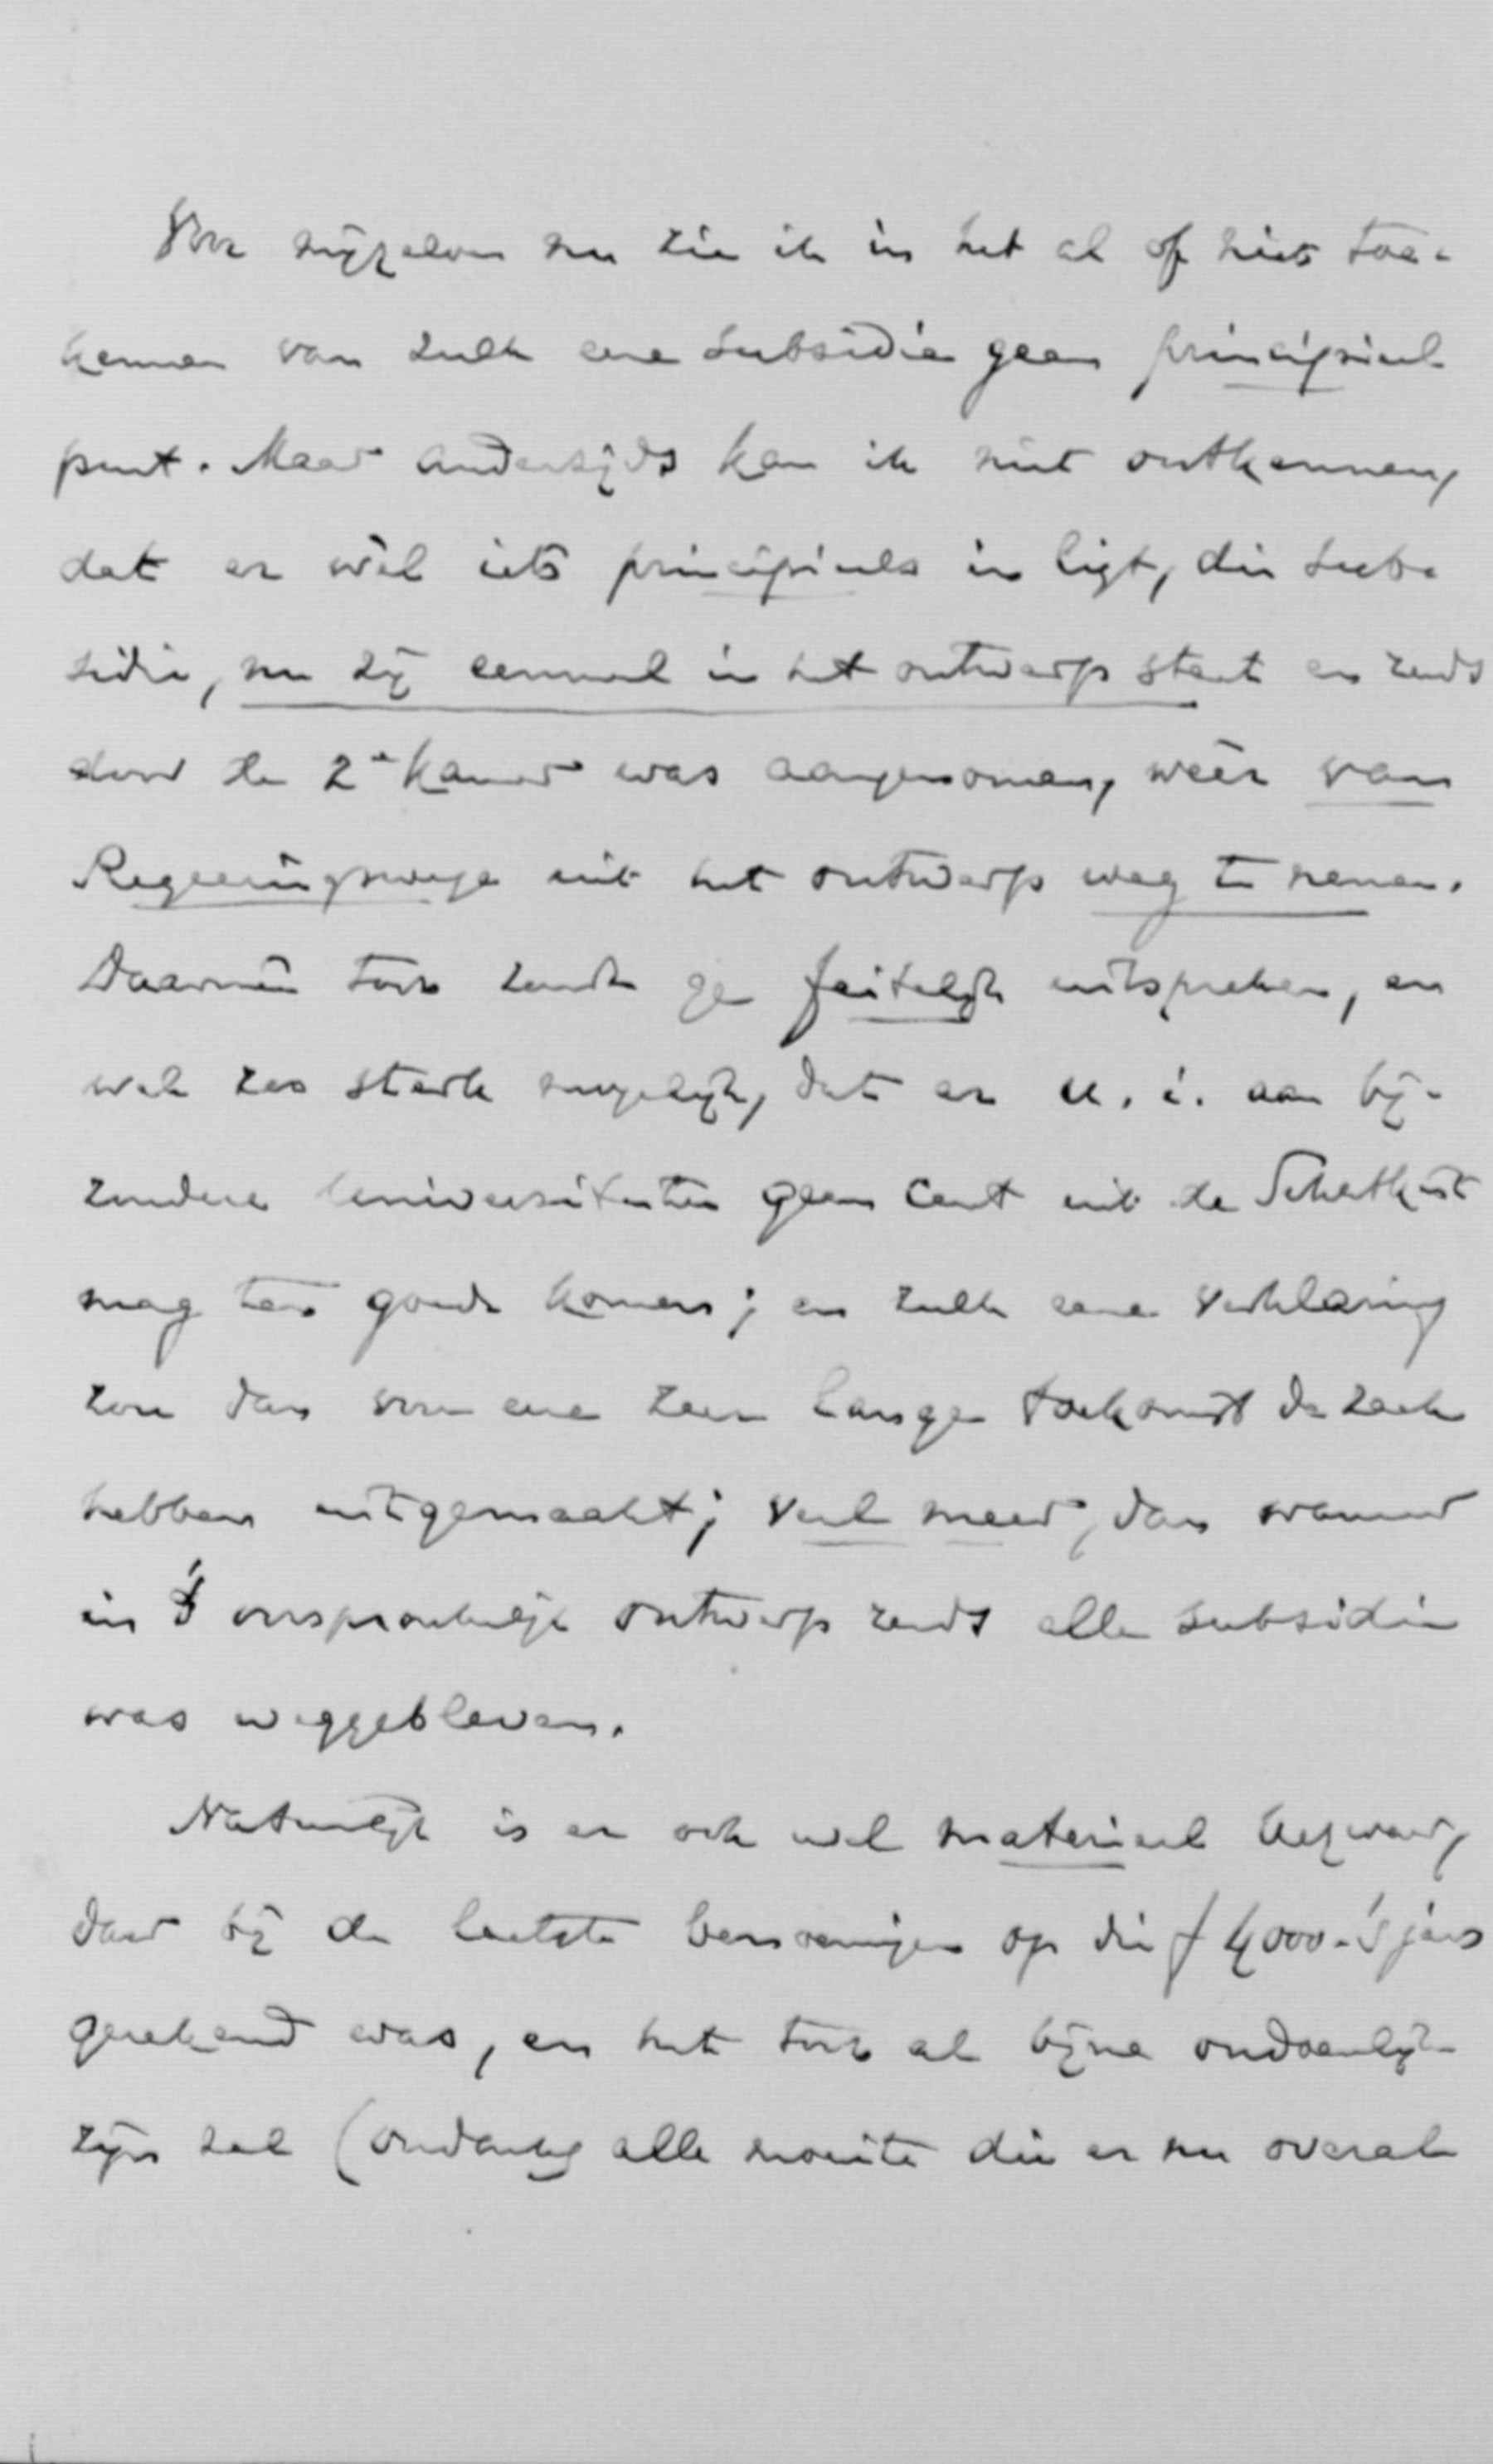 Voor mijzelven nu zie ik in het al of niet toe-
kennen van zulk eene subsidie geen principieel
punt. Maar anderzijds kan ik niet ontkennen,
dat er wèl iets principieels in ligt, die sub-
sidie, nu zij eenmaal in het ontwerp staat en reeds
door de 2e Kamer was aangenomen, weêr van
Regeeringswege uit het ontwerp weg te nemen.
Daarmeê toch zoudt ge feitelijk uitspreken, en
wel zoo sterk mogelijk, dat er u. i. aan bij-
zondere Universiteiten geen cent uit de Schatkist
mag ten goede komen; en zulk eene verklaring
zou dan voor eene zeer lange toekomst de zaak
hebben uitgemaakt; veel meer, dan wanneer
in 't oorspronkelijk ontwerp reeds alle subsidie
was weggebleven.
Natuurlijk is er ook wel materieel bezwaar,
daar bij de laatste benoemingen op die f 4000.- 's jaars
gerekend was, en het toch al bijna ondoenlijk
zijn zal (ondanks alle moeite die er nu overal